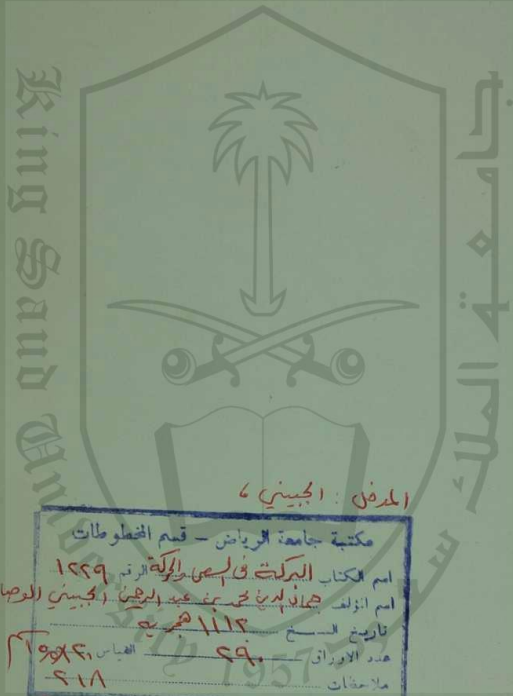 King Saud University
جامعة الملك سعود
المدخل : الجبيني ،
مكتبة جامعة الرياض – قسم المخطوطات
اسم الكتاب البركة في السعي والحركة الرقم ١٢٢٩
اسم المؤلف جمال الدين محمد بن عبد الرحمن الجبيني الوصا
تاريخ النسخ ١١١٢ هجرية
عدد الاوراق ٢٩٠ القياس
ملاحظات ٢١٨
1957